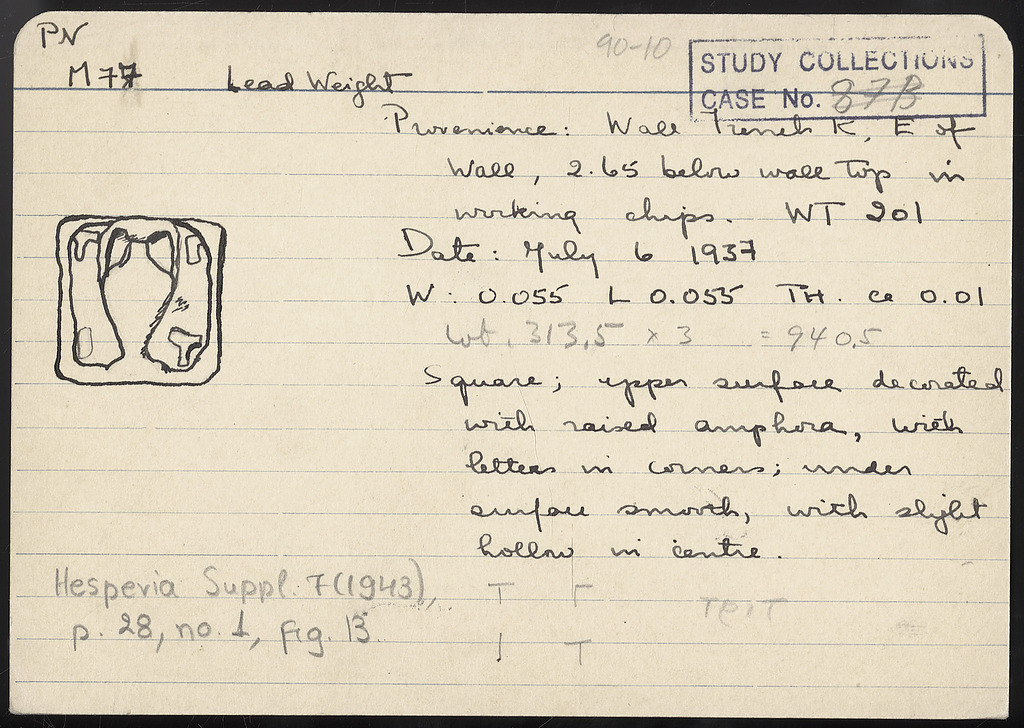 PN
90-10
STUDY COLLECTIONS
M 77 Lead Weight
CASE No. 87B
Provenience: Wall Trench K, E of
Wall, 2.65 below wall top in
working chips. WT 201
Date: July 6 1937
W: 0.055 L 0.055 TH. ca 0.01
wt. 313,5 x 3 = 940,5
Square; upper surface decorated
with raised amphora, with
letters in corners; under
surface smooth, with slight
hollow in centre.
Hesperia Suppl. 7 (1943),
p. 28, no. 1, fig. 13
T Γ
I T